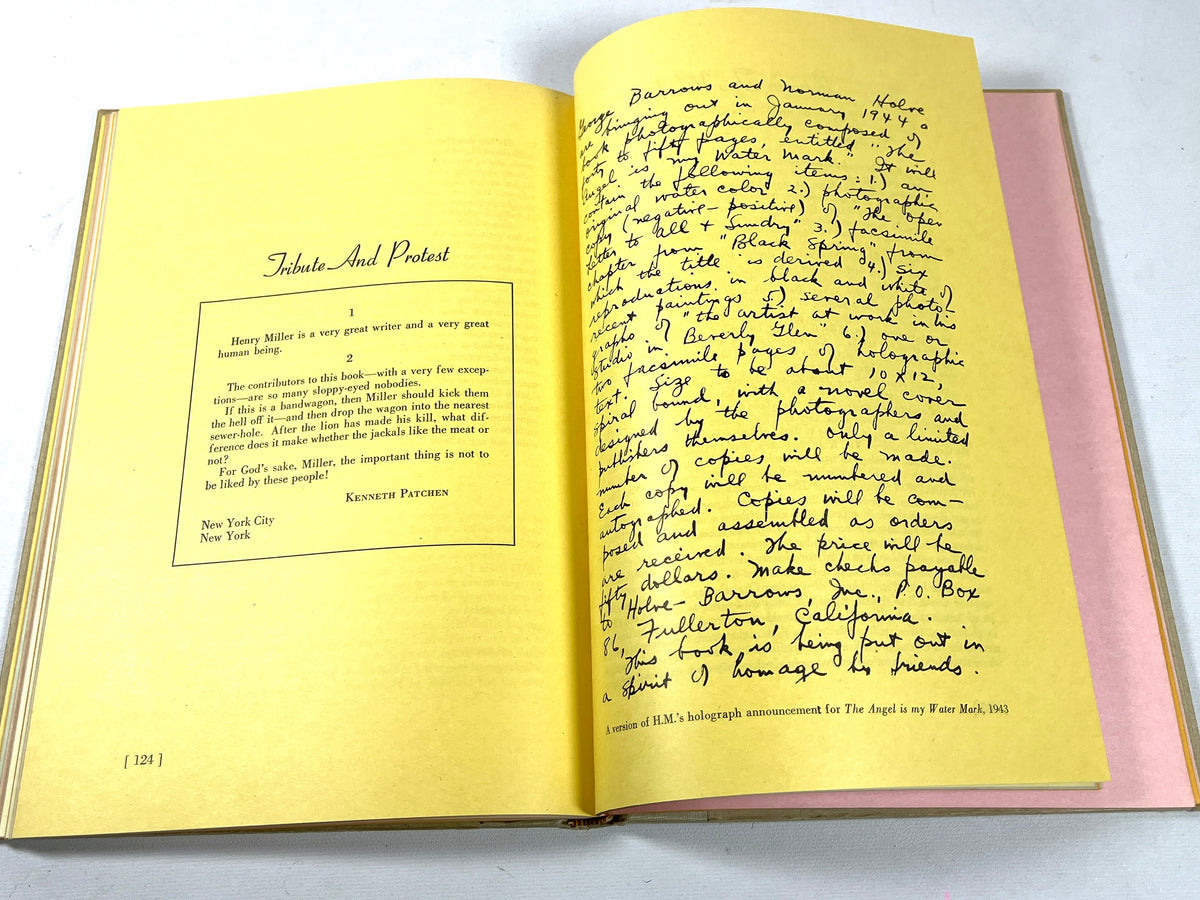 Tribute And Protest
1
Henry Miller is a very great writer and a very great
human being.
2
The contributors to this book—with a very few excep-
tions—are so many sloppy-eyed nobodies.
If this is a bandwagon, then Miller should kick them
the hell off it—and then drop the wagon into the nearest
sewer-hole. After the lion has made his kill, what dif-
ference does it make whether the jackals like the meat or
not?
For God's sake, Miller, the important thing is not to
be liked by these people!
KENNETH PATCHEN
New York City
New York
[ 124 ]
George Barrows and Norman Holve
are bringing out in January 1944 a
book photographically composed of
forty to fifty pages, entitled "The
Angel is my Water Mark." It will
contain the following items: 1.) an
original water color 2.) photographic
copy (negative-positive) of "The open
letter to all + Sundry" 3.) facsimile
chapter from "Black Spring" from
which the title is derived 4.) six
reproductions in black and white of
recent paintings 5.) several photo-
graphs of "the artist at work in his
studio in Beverly Glen" 6.) one or
two facsimile pages of holographic
text. Size to be about 10 x 12,
spiral bound, with a novel cover
designed by the photographers and
publishers themselves. Only a limited
number of copies will be made.
Each copy will be numbered and
autographed. Copies will be com-
posed and assembled as orders
are received. The price will be
fifty dollars. Make checks payable
to Holve-Barrows, Inc., P.O. Box
86, Fullerton, California.
This book is being put out in
a spirit of homage by friends.
A version of H.M.'s holograph announcement for The Angel is my Water Mark, 1943